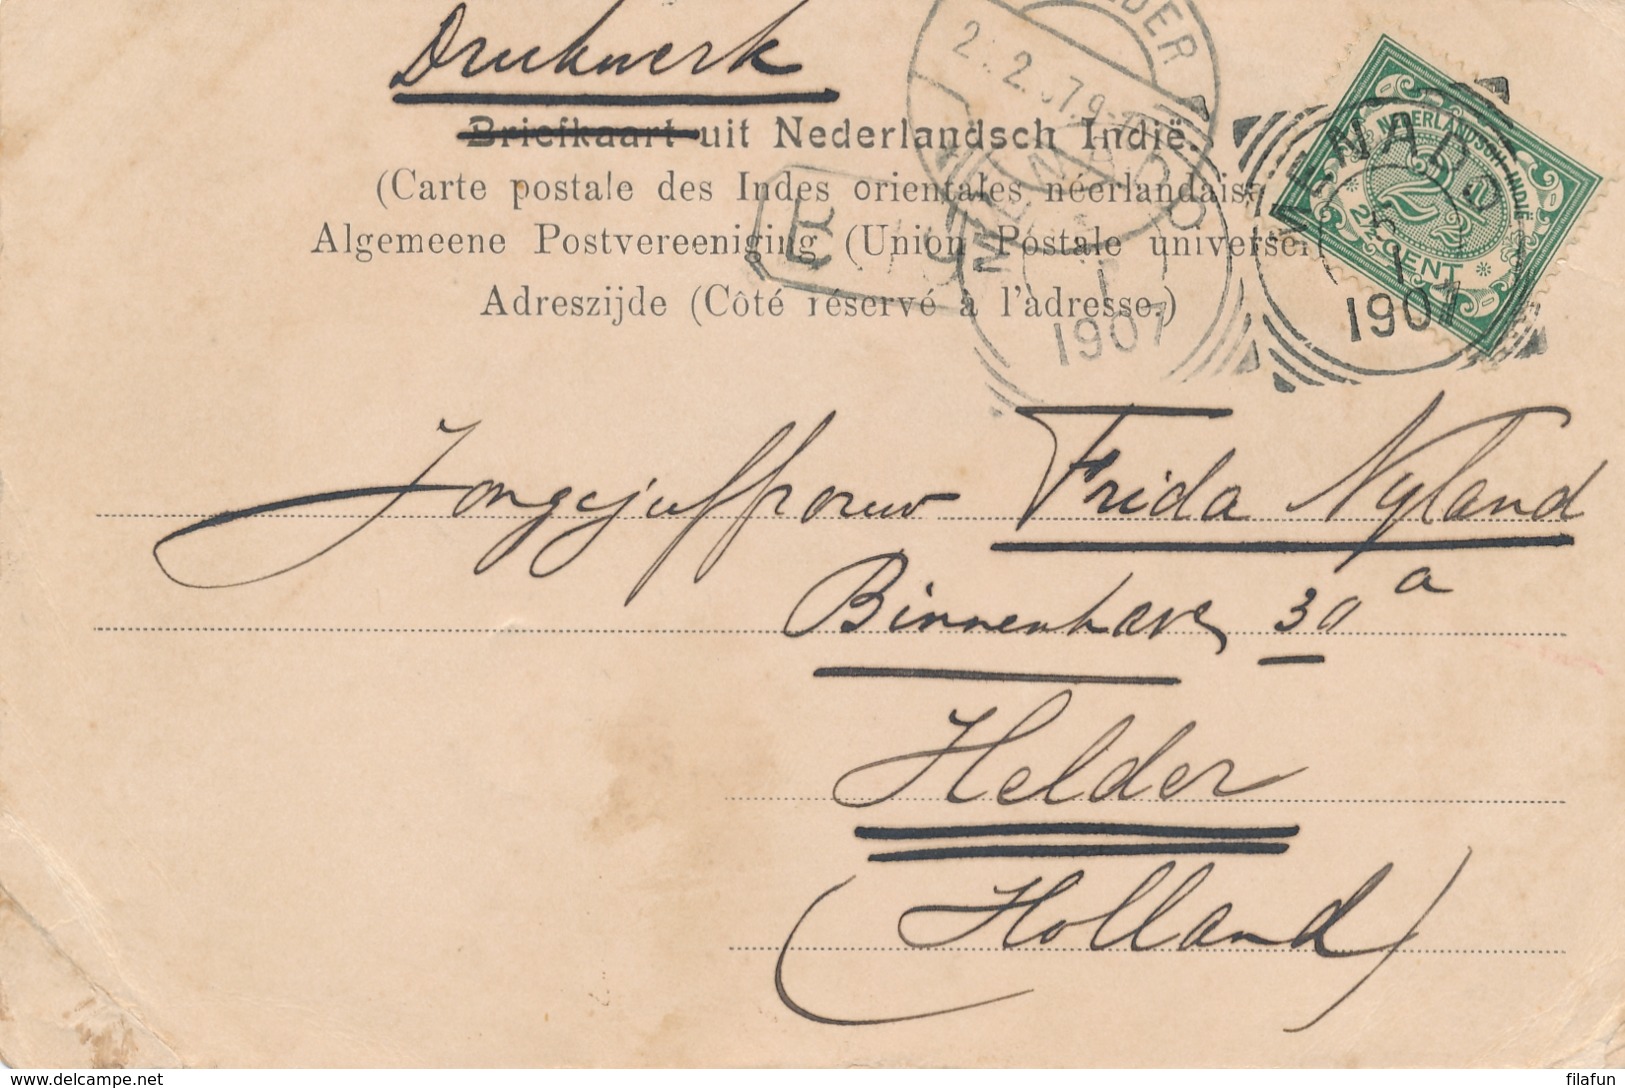 Drukwerk
HELDER
2.2.07.9-
Briefkaart uit Nederlandsch Indië.
(Carte postale des Indes orientales néerlandaise
Algemeene Postvereeniging (Union Postale universel
Adreszijde (Côté réservé à l'adresse.)
MENADO
1
1907
MENADO
5
1
1907
NEDERLANDSCH-INDIË
2½
2½ CENT
Jongejuffrouw Frida Nyland
Binnenhave 30 a
Helder
(Holland)
www.delcampe.net
filafun